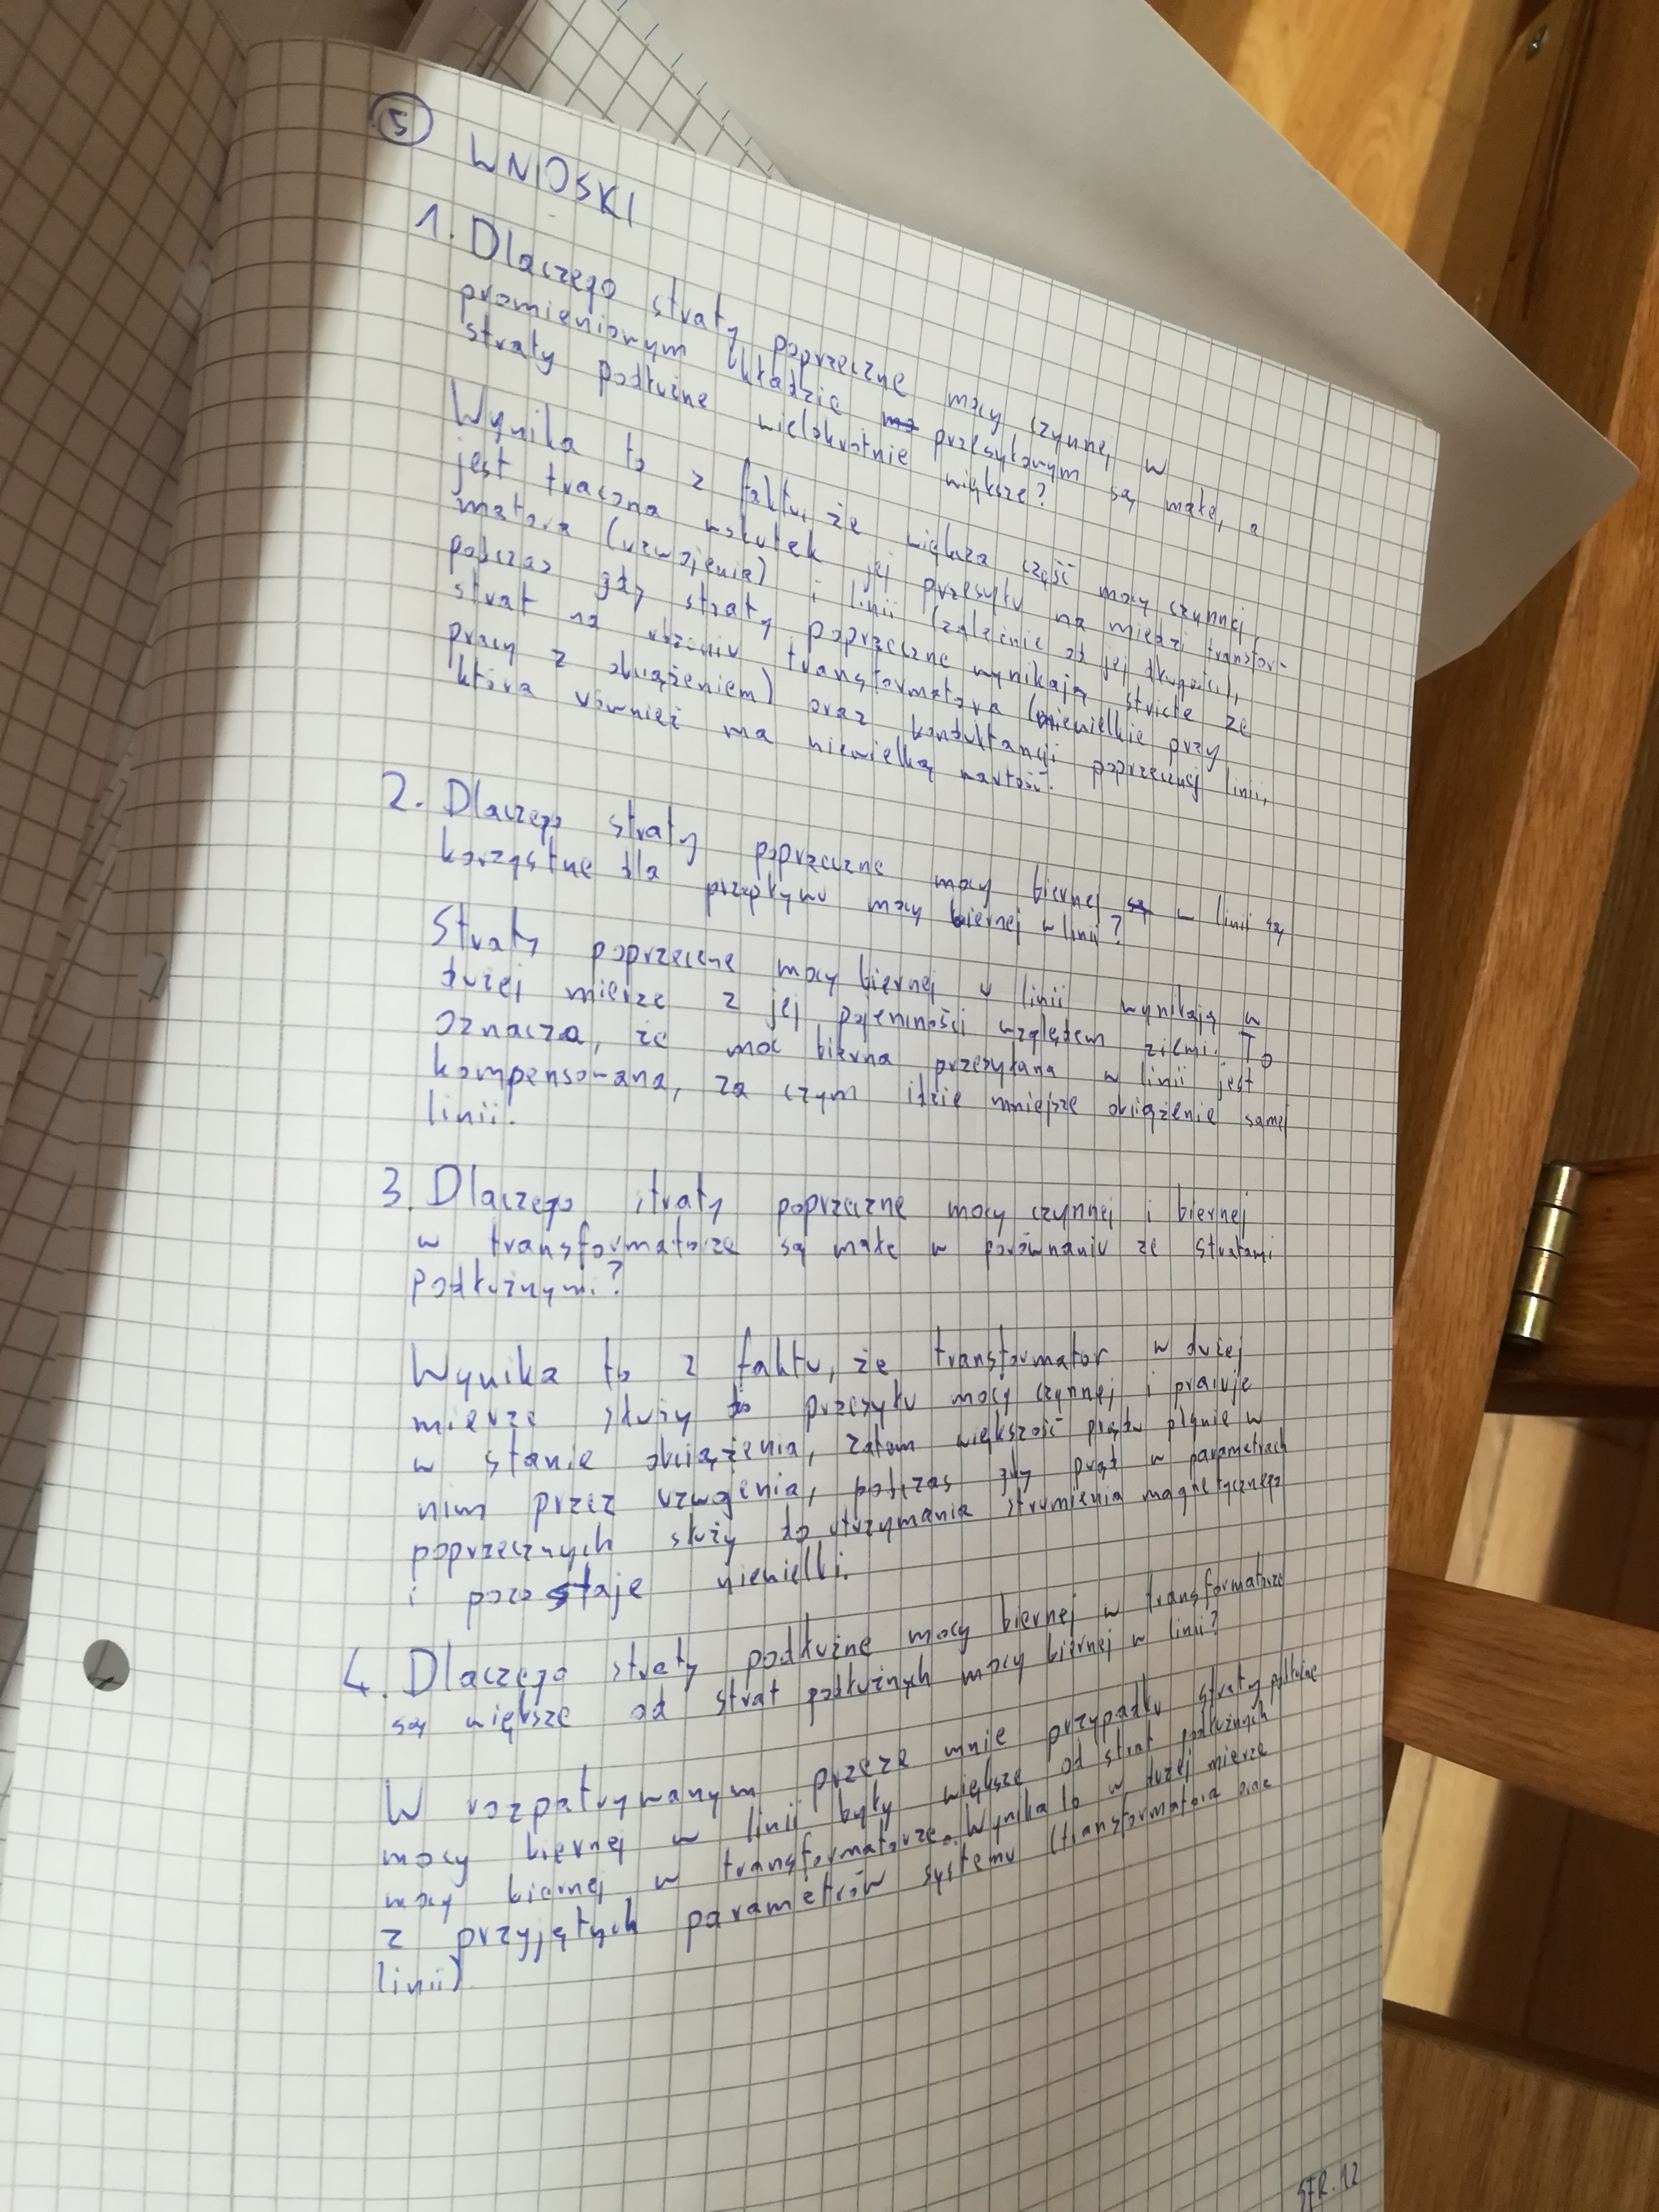 5 WNIOSKI
1. Dlaczego straty poprzeczne mocy czynnej w
promieniowym układzie przesyłowym są małe, a
straty podłużne wielokrotnie większe?
Wynika to z faktu, że większa część mocy czynnej
jest tracona wskutek jej przesyłu na miedzi transfor-
matora (uzwojenia) i linii (zależnie od jej długości),
podczas gdy straty poprzeczne wynikają stricte ze
strat na rdzeniu transformatora (niewielkie przy
pracy z obciążeniem) oraz konduktancji poprzecznej linii,
która również ma niewielką wartość.
2. Dlaczego straty poprzeczne mocy biernej w linii są
korzystne dla przepływu mocy biernej w linii?
Straty poprzeczne mocy biernej w linii wynikają w
dużej mierze z jej pojemności względem ziemi. To
oznacza, że moc bierna przesyłana w linii jest
kompensowana, za czym idzie mniejsze obciążenie samej
linii.
3. Dlaczego straty poprzeczne mocy czynnej i biernej
w transformatorze są małe w porównaniu ze stratami
podłużnymi?
Wynika to z faktu, że transformator w dużej
mierze służy do przesyłu mocy czynnej i pracuje
w stanie obciążenia, zatem większość prądu płynie w
nim przez uzwojenia, podczas gdy prąd w parametrach
poprzecznych służy do utrzymania strumienia magnetycznego
i pozostaje niewielki.
4. Dlaczego straty podłużne mocy biernej w transformatorze
są większe od strat podłużnych mocy biernej w linii?
W rozpatrywanym przeze mnie przypadku straty podłużne
mocy biernej w linii były większe od strat podłużnych
mocy biernej w transformatorze. Wynika to w dużej mierze
z przyjętych parametrów systemu (transformatora oraz
linii).
STR. 12